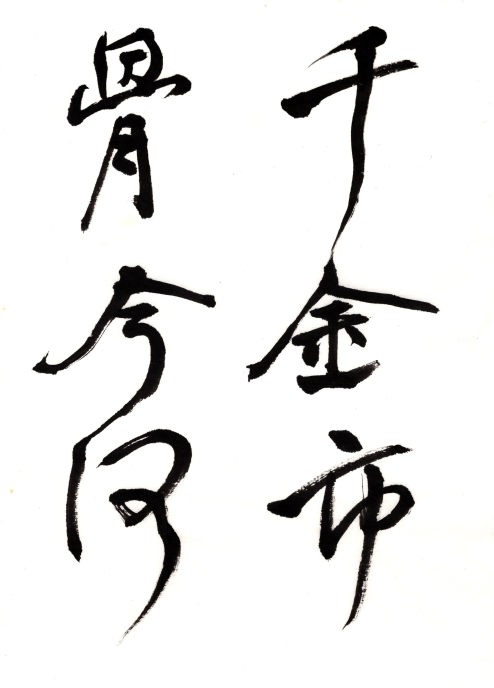 千金市
骨今何